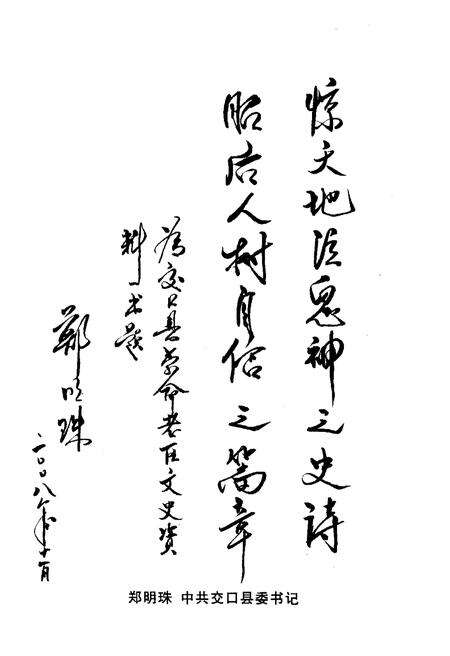 惊天地泣鬼神之史诗
昭后人树自信之篇章
为交口县革命老区文史资
料书题
郑明珠
二〇〇八年十一月
郑明珠 中共交口县委书记